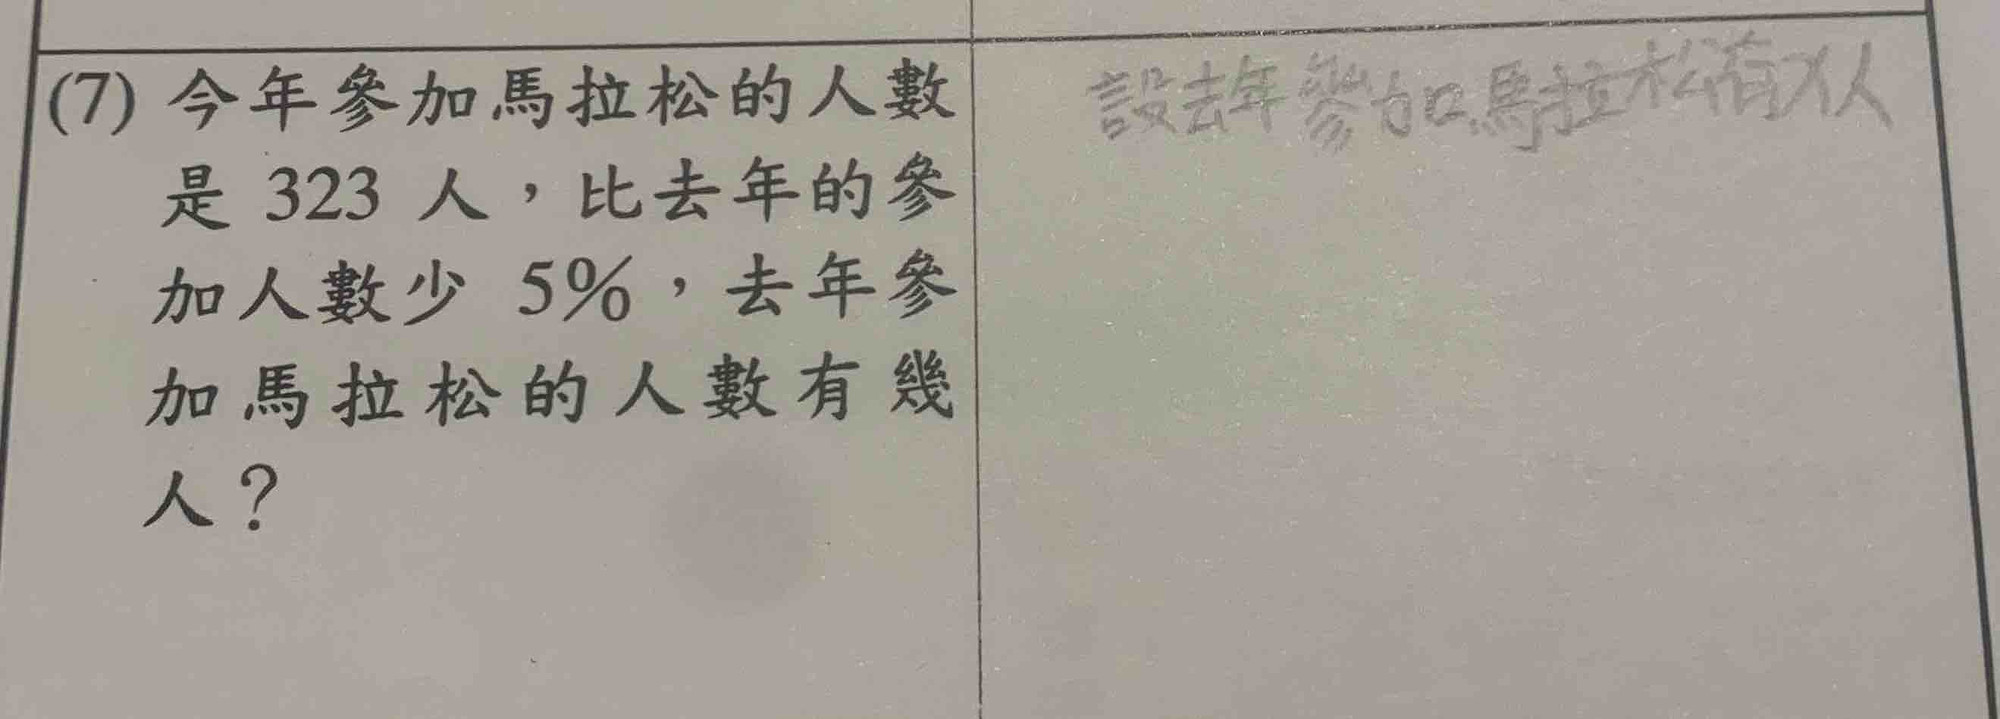 (7) 今年參加馬拉松的人數
是 323 人，比去年的參
加人數少 5%，去年參
加馬拉松的人數有幾
人？
設去年參加馬拉松有x人